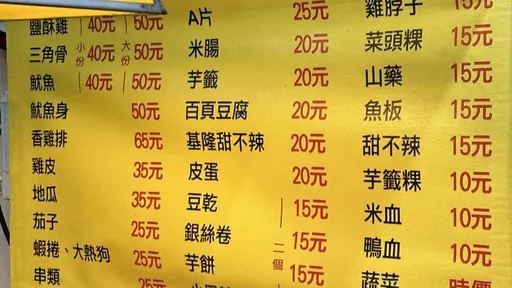 鹽酥雞 40元 50元
三角骨 小份 40元 大份 50元
魷魚 40元 50元
魷魚身 50元
香雞排 65元
雞皮 35元
地瓜 35元
茄子 25元
蝦捲、大熱狗 25元
串類 25元
A片 25元
米腸 20元
芋籤 20元
百頁豆腐 20元
基隆甜不辣 20元
皮蛋 20元
豆乾 15元
銀絲卷 二個 15元
芋餅 15元
雞脖子 15元
菜頭粿 15元
山藥 15元
魚板 15元
甜不辣 15元
芋籤粿 10元
米血 10元
鴨血 10元
蔬菜 時價